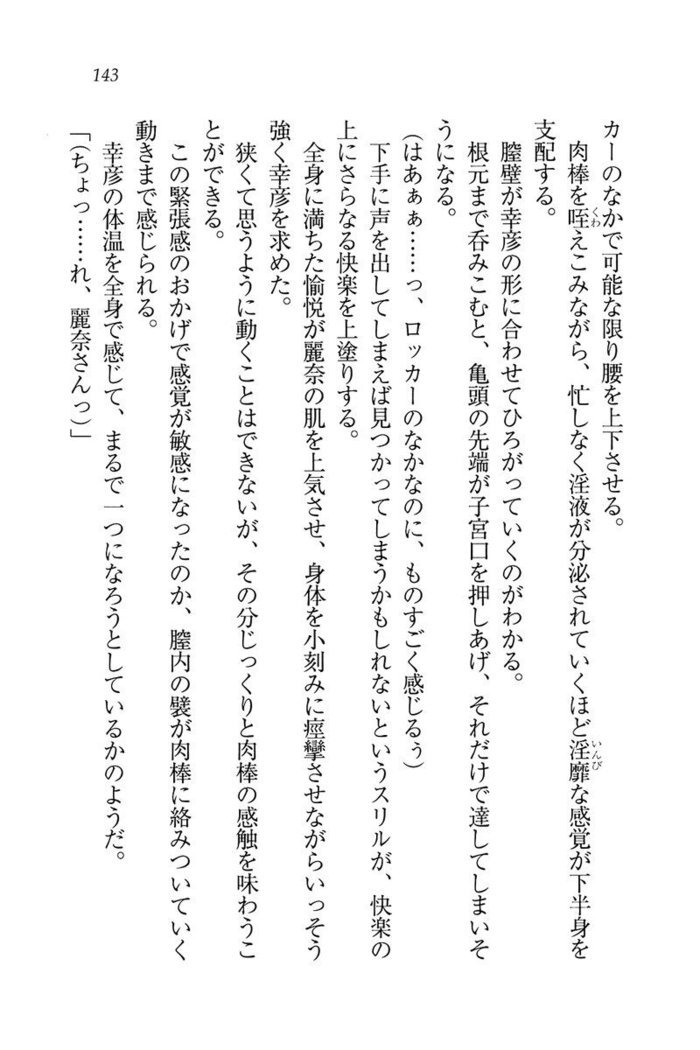 143
カーのなかで可能な限り腰を上下させる。
肉棒を咥えこみながら、忙しなく淫液が分泌されていくほど淫靡な感覚が下半身を
支配する。
膣壁が幸彦の形に合わせてひろがっていくのがわかる。
根元まで呑みこむと、亀頭の先端が子宮口を押しあげ、それだけで達してしまいそ
うになる。
(はあぁぁ……っ、ロッカーのなかなのに、ものすごく感じるぅ)
下手に声を出してしまえば見つかってしまうかもしれないというスリルが、快楽の
上にさらなる快楽を上塗りする。
全身に満ちた愉悦が麗奈の肌を上気させ、身体を小刻みに痙攣させながらいっそう
強く幸彦を求めた。
狭くて思うように動くことはできないが、その分じっくりと肉棒の感触を味わうこ
とができる。
この緊張感のおかげで感覚が敏感になったのか、膣内の襞が肉棒に絡みついていく
動きまで感じられる。
幸彦の体温を全身で感じて、まるで一つになろうとしているかのようだ。
「(ちょっ……れ、麗奈さんっ)」